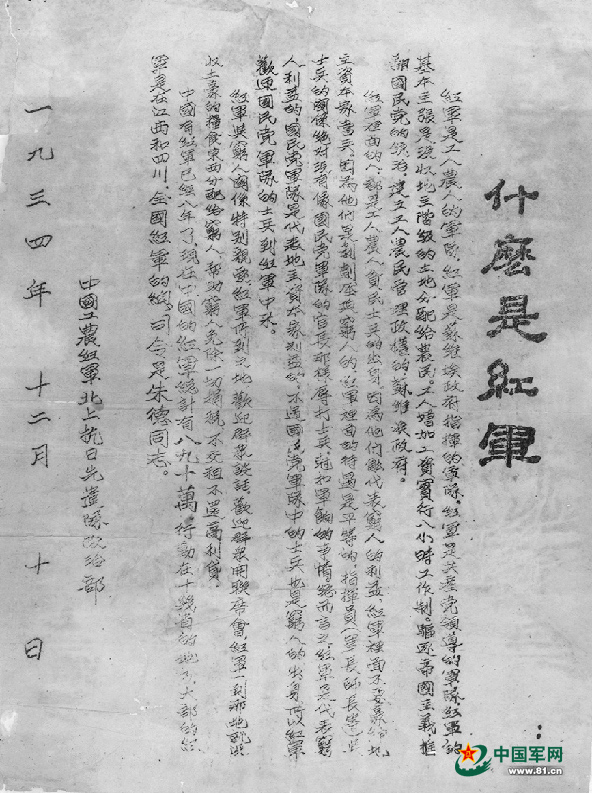 什麽是紅軍
紅軍是工人農人的軍隊，紅軍是蘇維埃政府指揮的軍隊，紅軍是共產党領導的軍隊。紅軍的
基本主張是沒收地主階級的土地分配給農民。工人增加工資實行八小時工作制。驅逐帝國主義推
翻國民党的統治，建立工人農民管理政權的蘇維埃政府。
紅軍裡面的人，都是工人農人貧民士兵的出身，因為他們能代表窮人的利益，紅軍裡面不要豪紳地
主資本家當兵。因為他們是剝削壓迫窮人的，紅軍裡面的待遇是平等的，指揮員（軍長師長等）
士兵的關係絕对沒有像國民党軍隊的官長那樣打士兵，尅扣軍餉的事情總而言之，紅軍是代表窮
人利益的，國民党軍隊是代表地主資本家利益的。不過國民党軍隊中的士兵也是窮人的出身所以紅軍
歡迎國民党軍隊的士兵到紅軍中來。
紅軍與窮人關係特別親密紅軍所到之地，歡迎群衆談話，歡迎群衆開聯席會，紅軍一到那地就沒
收土豪的糧食東西分配給窮人，幫助窮人免除一切捐稅，不交租不還高利貸。
中國有紅軍已經八年了，現在中國的紅軍總計有八九十萬，行動在十幾省的地方，大部的紅
軍是在江西和四川，全國紅軍的總司令是朱德同志。
中國工農紅軍北上抗日先遣隊政治部
一九三四年 十二月 十日
中国军网
www.81.cn